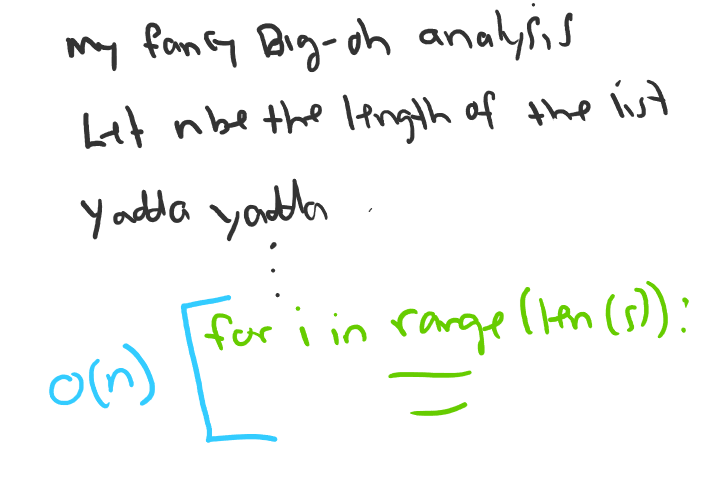 my fancy Big-oh analysis
Let n be the length of the list
yadda yadda
for i in range(len(s)):
O(n)